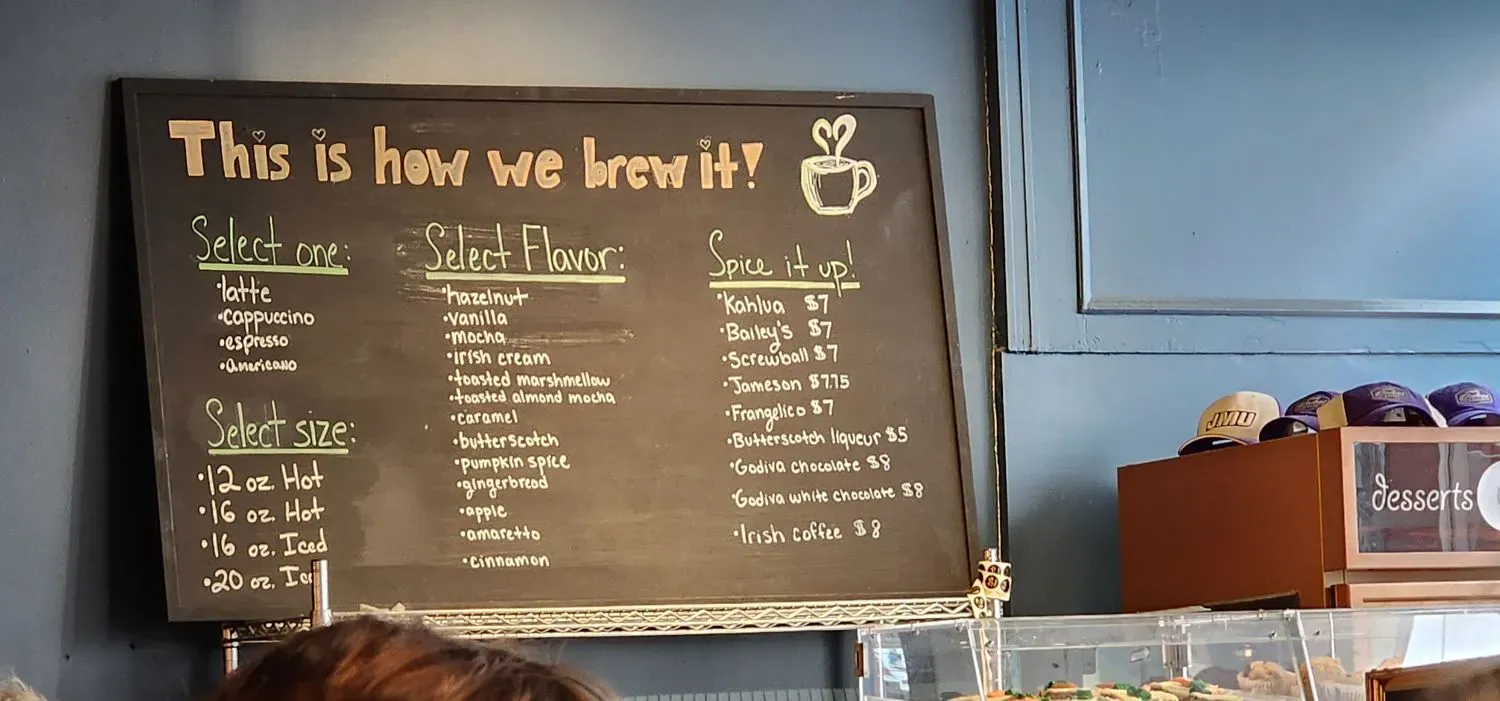 This is how we brew it!
Select one:
•latte
•cappuccino
•espresso
•Americano
Select size:
•12 oz. Hot
•16 oz. Hot
•16 oz. Iced
•20 oz. Ic
Select Flavor:
•hazelnut
•vanilla
•mocha
•irish cream
•toasted marshmellow
•toasted almond mocha
•caramel
•butterscotch
•pumpkin spice
•gingerbread
•apple
•amaretto
•cinnamon
Spice it up!
•Kahlua $7
•Bailey's $7
•Screwball $7
•Jameson $7.75
•Frangelico $7
•Butterscotch liqueur $5
•Godiva chocolate $8
•Godiva white chocolate $8
•Irish coffee $8
JMU
desserts